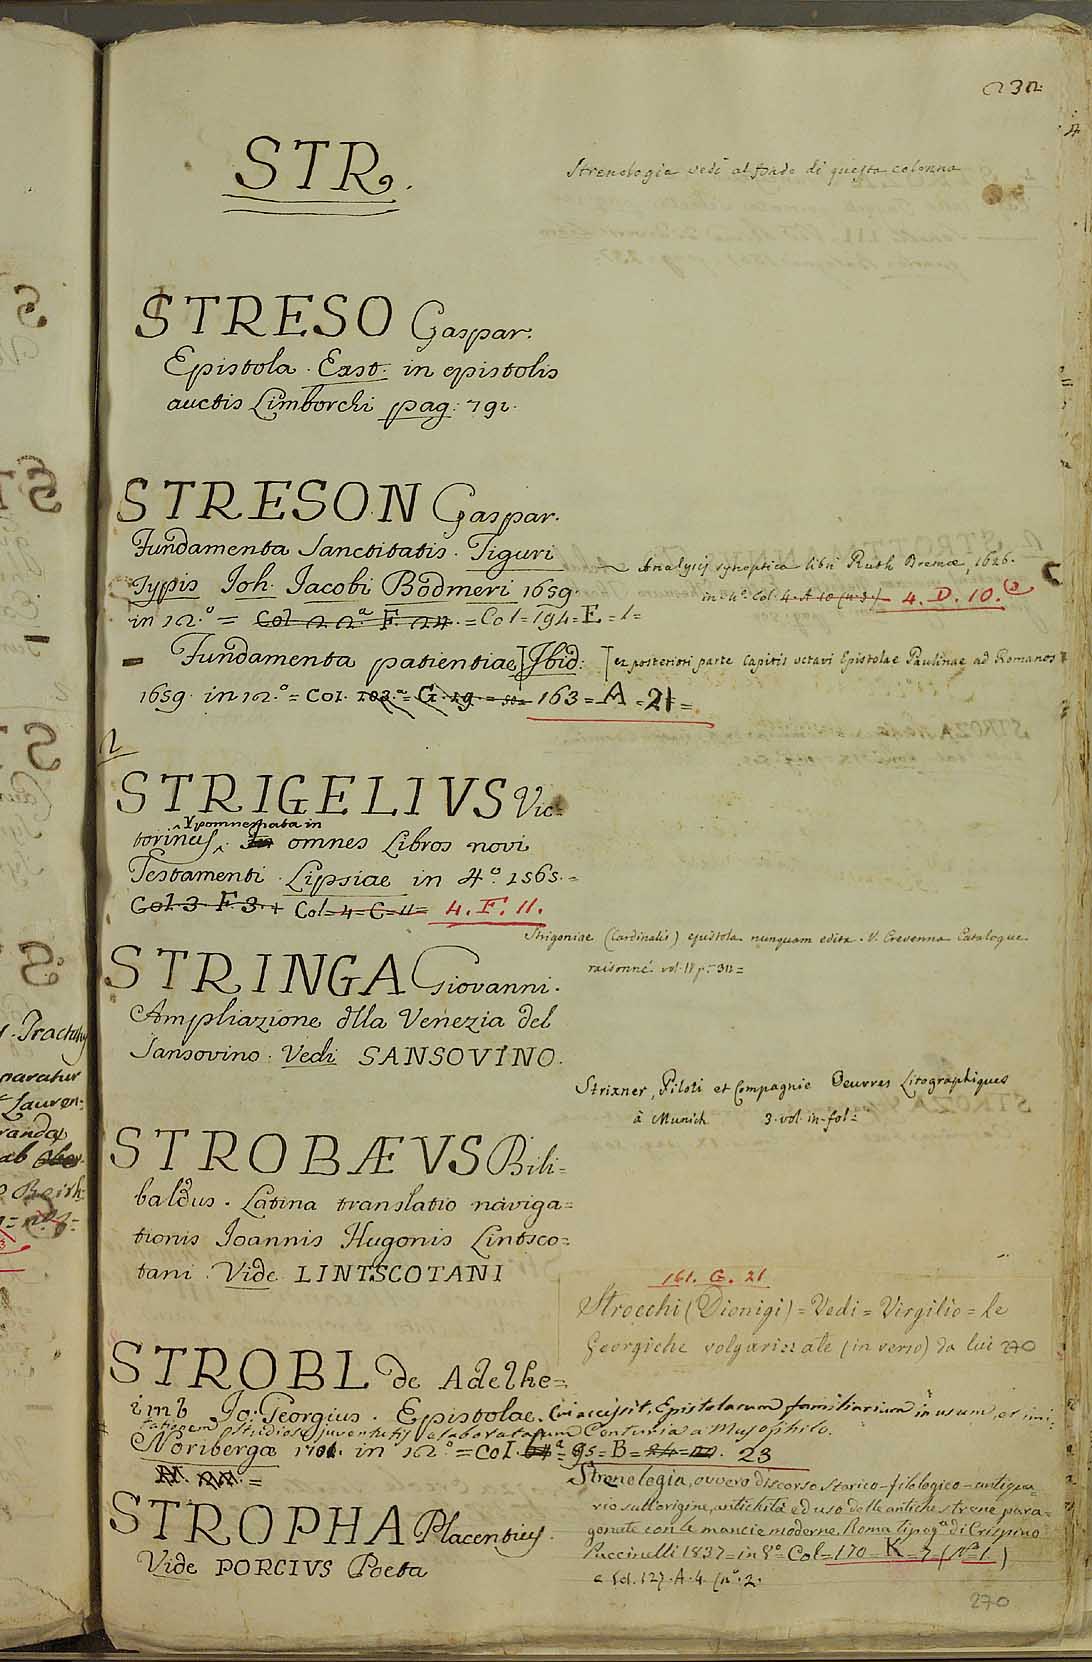 232
STR.
Strenologia vedi al piede di questa colonna
STRESO Gaspar.
Epistola. Exst. in epistolis
auctis Limborchi pag: 791.
STRESON Gaspar.
Fundamenta Sanctitatis. Tiguri
Typis Joh. Jacobi Bodmeri 1659.
in 12.° = Col 22.ª F. 24. = Col=194=E=1=
Analysis synoptica libri Ruth Bremæ, 1626.
in 4.° Col. 4. A 10 4. D. 10.
– Fundamenta patientiae Ibid:
[ex posteriori parte Capitis octavi Epistolae Paulinae ad Romanos
1659. in 12.° = Col. 163 = A = 21 =
STRIGELIVS Vic=
Ypomnemata in
torinus. In omnes Libros novi
Testamenti. Lipsiae in 4.° 1565. =
Col 3. F. 3. + Col=4=C=11= 4. F. 11.
Strigoniae (Cardinalis) epistola nunquam edita. V. Crevenna Catalogue
raisonné vol. II p.
STRINGA Giovanni.
Ampliazione dlla Venezia del
Sansovino. Vedi SANSOVINO.
Strixner, Piloti et Compagnie Oeuvres Litographiques
à Munich 3. vol. in-fol=
STROBÆVS Bili=
baldus. Latina translatio naviga=
tionis Joannis Hugonis Lintsco=
tani. Vide LINTSCOTANI
161. G. 21
Strocchi (Dionigi) = Vedi = Virgilio = le
Georgiche volgarizzate (in verso) da lui 270
STROBL de Adelhe=
imb Jo: Georgius. Epistolae. Cui accessit, Epistolarum familiarium in usum, et imi=
tationem studiosae juventutis elaboratarum Centuria a Musophilo.
Noribergæ 1701. in 12.° = Col. 95 = B = 23
STROPHA Placentius.
Vide PORCIVS Poeta
Strenologia, ovvero discorso storico-filologico-antiqua=
rio sull'origine, antichità ed uso delle antiche strene para=
gonate con le mancie moderne. Roma tipog.ª di Crispino
Puccinelli 1837 = in 8° = Col = 170 = K = 7 = (n° 1.)
e Col. 127. A. 4. (n°. 2.
270